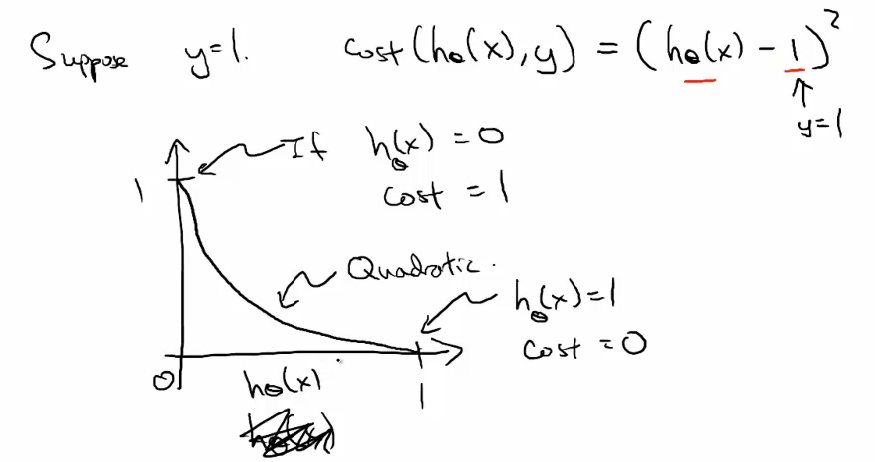 Suppose y=1. cost(hθ(x), y) = (hθ(x) - 1)²
y=1
If hθ(x) = 0
1 cost = 1
Quadratic.
hθ(x)=1
cost = 0
0 hθ(x) 1